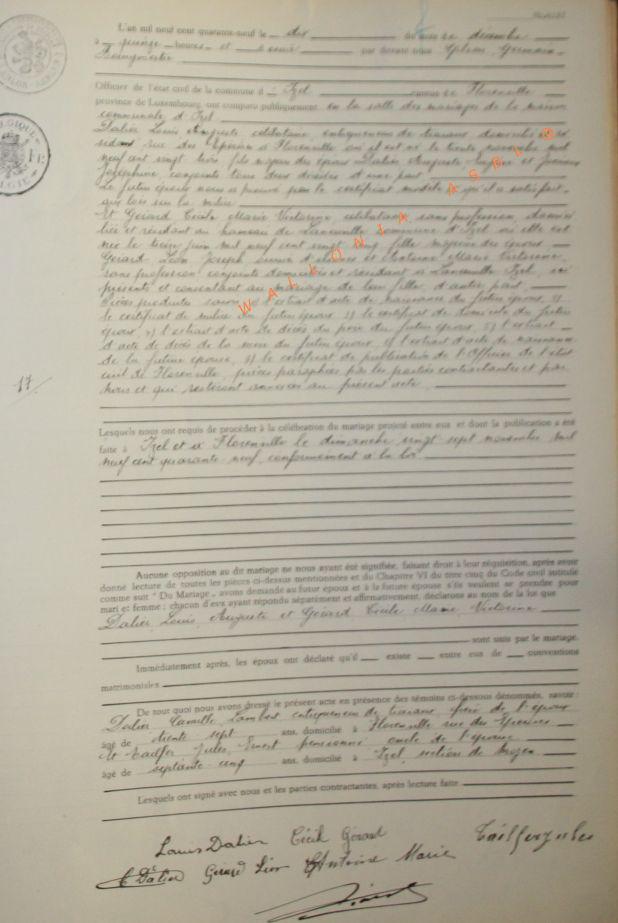 L'an mil neuf cent quarante-neuf le dix du mois de décembre
à quinze heures et demie par devant nous Germain
Officier de l'état civil de la commune d'Izel canton de Florenville
province de Luxembourg, ont comparu publiquement en la salle des mariages de la maison
communale d'Izel
Dalier Louis Auguste célibataire, entrepreneur de travaux domicilié et ré
sidant rue des Epesses à Florenville où il est né le trente novembre mil
neuf cent vingt trois fils majeur des époux Dalier Auguste et
Joséphine, conjoints tous deux décédés d'une part
Le futur époux nous a prouvé par le certificat modèle qu'il a satisfait
aux lois sur la milice
Et Gérard Cécile Marie Victorine célibataire, sans profession, domici
liée et résidant au hameau de commune d'Izel où elle est
née le treize juin mil neuf cent vingt cinq fille majeure des époux
Gérard Léon Joseph et Antoine Marie Victorine,
sans profession conjoints domiciliés et résidant à Izel, ici
présents et consentant au mariage de leur fille, d'autre part
Pièces produites savoir l'extrait d'acte de naissance du futur époux,
le certificat de milice du futur époux le certificat de domicile du futur
époux, l'extrait d'acte de décès du père du futur époux, l'extrait
d'acte de décès de la mère du futur époux, l'extrait d'acte de naissance
de la future épouse, le certificat de publication de l'Officier de l'état
civil de Florenville, pièces paraphées par les parties contractantes et par
nous et qui resteront annexées au présent acte
17
Lesquels nous ont requis de procéder à la célébration du mariage projeté entre eux et dont la publication a été
faite à Izel et à Florenville le dimanche vingt sept novembre mil
neuf cent quarante neuf, conformément à la loi
Aucune opposition au dit mariage ne nous ayant été signifiée, faisant droit à leur réquisition, après avoir
donné lecture de toutes les pièces ci-dessus mentionnées et du Chapitre VI du titre cinq du Code civil intitulé
comme suit " Du Mariage ", avons demandé au futur époux et à la future épouse s'ils veulent se prendre pour
mari et femme ; chacun d'eux ayant répondu séparément et affirmativement, déclarons au nom de la loi que
Dalier, Louis, Auguste et Gérard Cécile Marie Victorine
sont unis par le mariage.
Immédiatement après, les époux ont déclaré qu'il existe entre eux de conventions
matrimoniales
De tout quoi nous avons dressé le présent acte en présence des témoins ci-dessous dénommés, savoir :
Dalier Camille Lambert entrepreneur de travaux frère de l'époux
âgé de trente sept ans, domicilié à Florenville rue des Epesses
et Jules Ernest pensionné oncle de l'épouse
âgé de septante cinq ans, domicilié à Izel section de Moyen
Lesquels ont signé avec nous et les parties contractantes, après lecture faite
Louis Dalier Cécile Gérard
C Dalier Gérard Léon Antoine Marie
WALLONIA ASBL ©